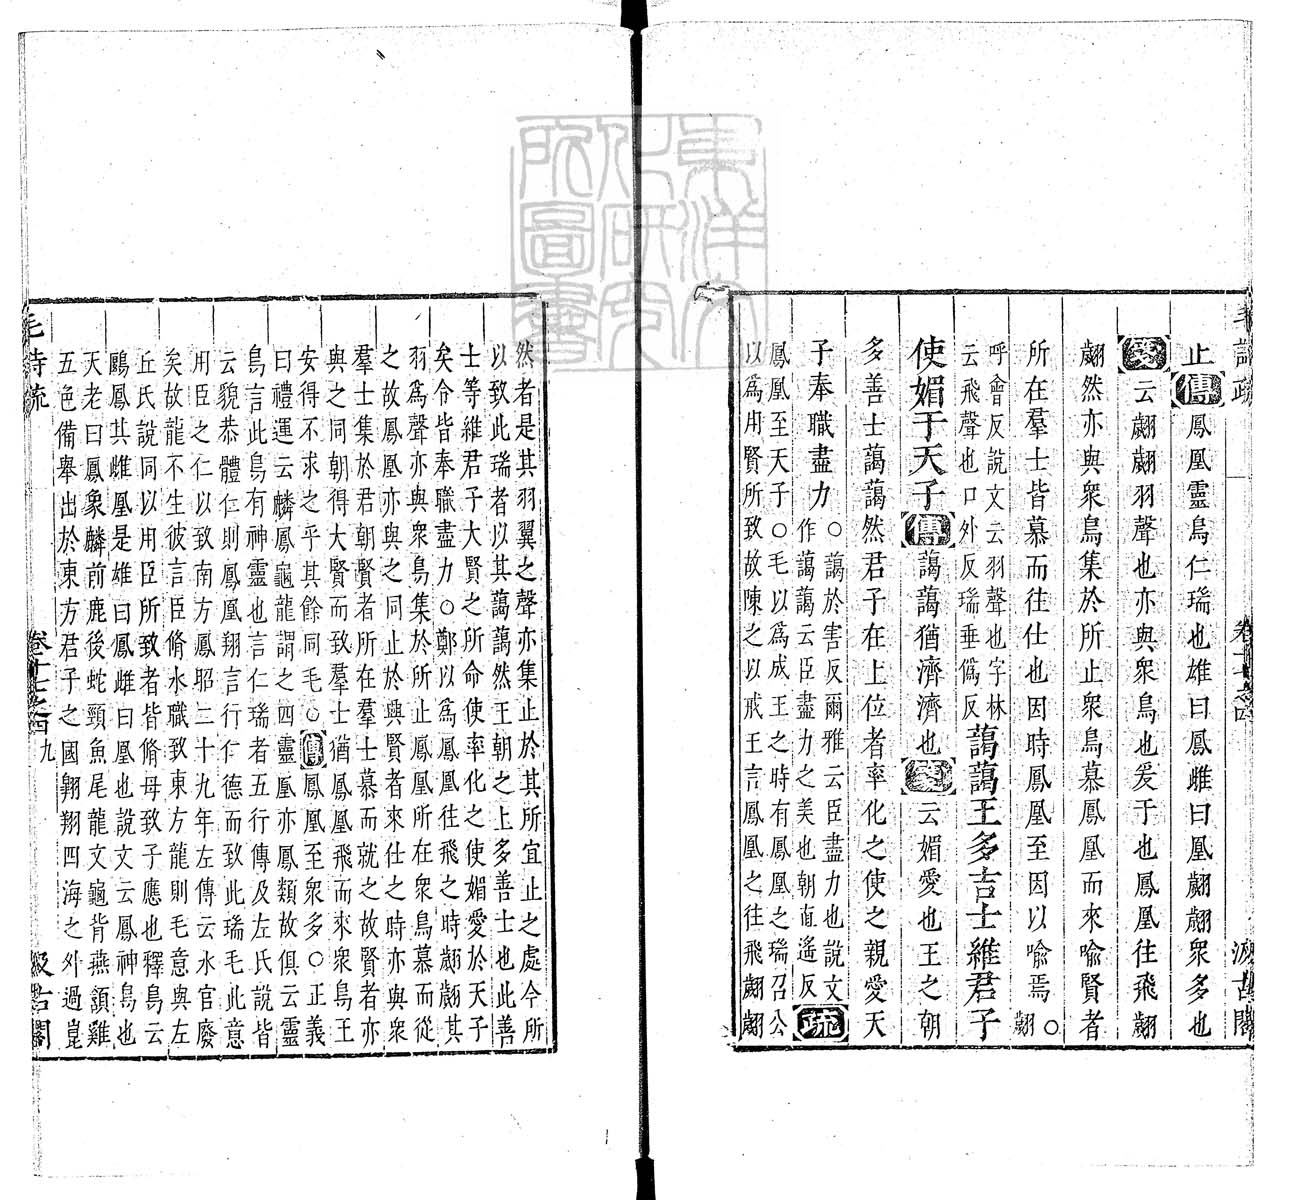 止傳鳳凰靈鳥仁瑞也雄曰鳳雌曰凰翽翽衆多也
箋云翽翽羽聲也亦與衆鳥也爰于也鳳凰往飛翽
翽然亦與衆鳥集於所止衆鳥慕鳳凰而來喻賢者
所在羣士皆慕而往仕也因時鳳凰至因以喻焉○翽
呼會反說文云羽聲也字林
云飛聲也口外反瑞垂僞反
藹藹王多吉士維君子
使媚于天子傳藹藹猶濟濟也箋云媚愛也王之朝
多善士藹藹然君子在上位者率化之使之親愛天
子奉職盡力○藹於害反爾雅云臣盡力也說文
作藹藹云臣盡力之美也朝直遙反
疏
鳳凰至天子○毛以爲成王之時有鳳凰之瑞召公
以爲用賢所致故陳之以戒王言鳳凰之往飛翽翽
然者是其羽翼之聲亦集止於其所宜止之處今所
以致此瑞者以其藹藹然王朝之上多善士也此善
士等維君子大賢之所命使率化之使媚愛於天子
矣令皆奉職盡力○鄭以爲鳳凰往飛之時翽翽其
羽爲聲亦與衆鳥集於所止鳳凰所在衆鳥慕而從
之故鳳凰亦與之同止於興賢者來仕之時亦與衆
羣士集於君朝賢者所在羣士慕而就之故賢者亦
與之同朝得大賢而致羣士猶鳳凰飛而來衆鳥王
安得不求之乎其餘同毛○傳鳳凰至衆多○正義
曰禮運云麟鳳龜龍謂之四靈凰亦鳳類故俱云靈
鳥言此鳥有神靈也言仁瑞者五行傳及左氏說皆
云貌恭體仁則鳳凰翔言行仁德而致此瑞毛此意
用臣之仁以致南方鳳昭二十九年左傳云水官廢
矣故龍不生彼言臣脩水職致東方龍則毛意與左
丘氏說同以用臣所致者皆脩母致子應也釋鳥云
鶠鳳其雌凰是雄曰鳳雌曰凰也說文云鳳神鳥也
天老曰鳳象麟前鹿後蛇頸魚尾龍文龜背燕頷雞
五色備舉出於東方君子之國翱翔四海之外過崑
毛詩疏 卷十七之四 九 汲古閣